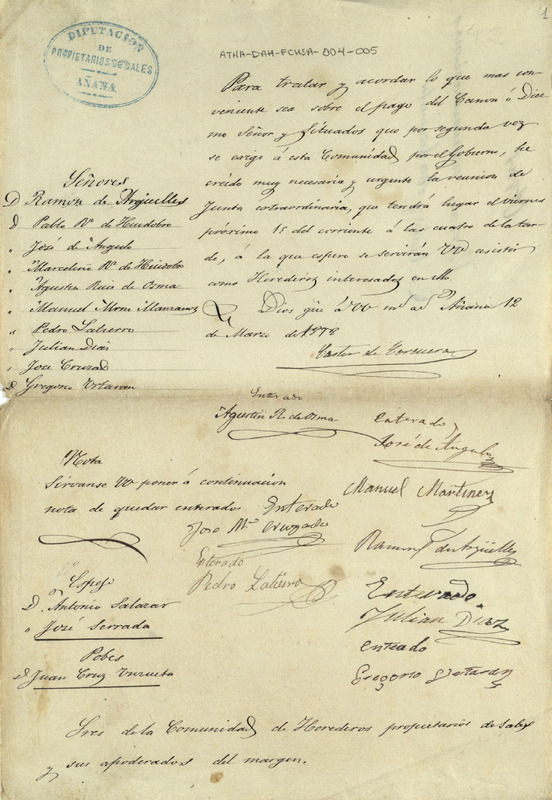 1
DIPUTACION
DE
PROPIETARIOS DE SALES
AÑANA
ATHA-DAH-FCHSA-004-005
Para tratar y acordar lo que mas con-
veniente sea sobre el pago del Canon ó Diez
mo Señor y Situados que por segunda vez
se exige á esta Comunidad por el Gobierno, he
creido muy necesaria y urgente la reunion de
Junta extraordinaria, que tendrá lugar el viernes
próximo 15 del corriente á las cuatro de la tar-
de, á la que espero se servirán VV asistir
como Herederos interesados en ella
Dios güe á VV ms as Añana 12
de Marzo de 1878
Señores
D Ramon de Argüelles
D Pablo Rz de Huidobro
" José de Angulo
" Marcelino Rz de Huidobro
" Agustin Ruiz de Osma
" Manuel Mrn Manzanos
" Pedro Latierro
" Julian Diaz
" José Cruzado
D Gregorio Ortaran
Enterado
Agustin R. de Osma
enterado
José de Angulo
Nota
Sirvanse VV poner á continuacion
nota de quedar enterado
Enterado
Jose Ma Cruzado
Manuel Martinez
Enterado
Pedro Latierro
Ramon de Argüelles
Espejo
D. Antonio Salazar
" José Serrada
Enterado
Julian Diez
Pobes
D Juan Cruz Unzueta
enteado
Gregorio
Sres de la Comunidad de Herederos propietarios de Sales
y sus apoderados del margen.